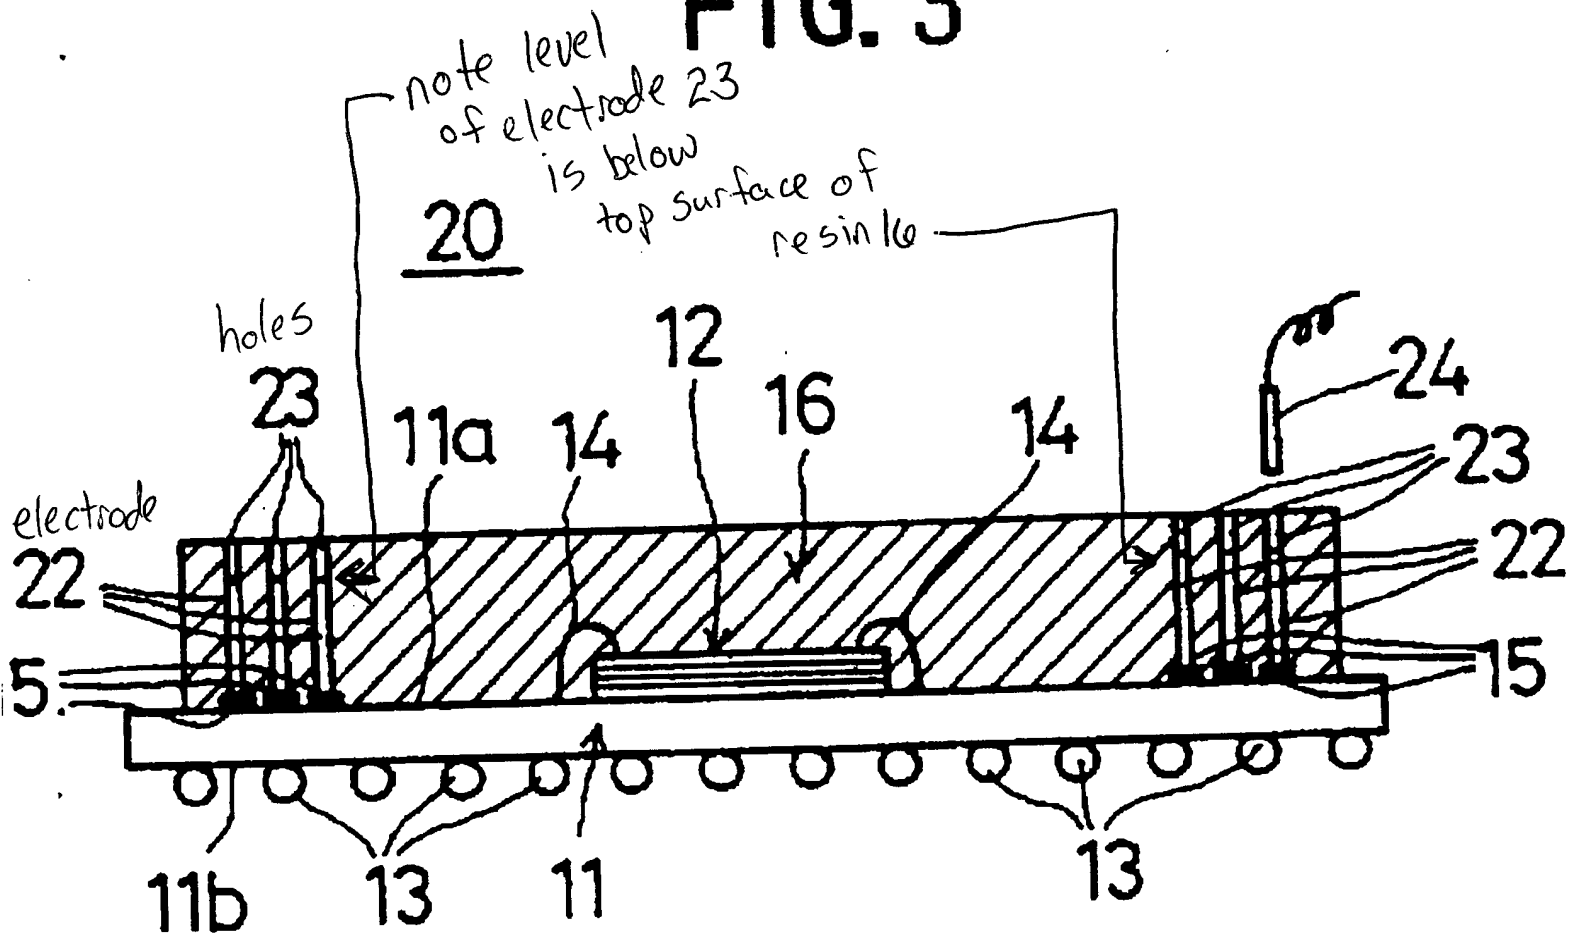 FIG. 3
note level
of electrode 23
is below
top surface of
resin 16
20
holes
23
11a
14
12
16
14
24
23
electrode
22
22
15
5.
11b
13
11
13